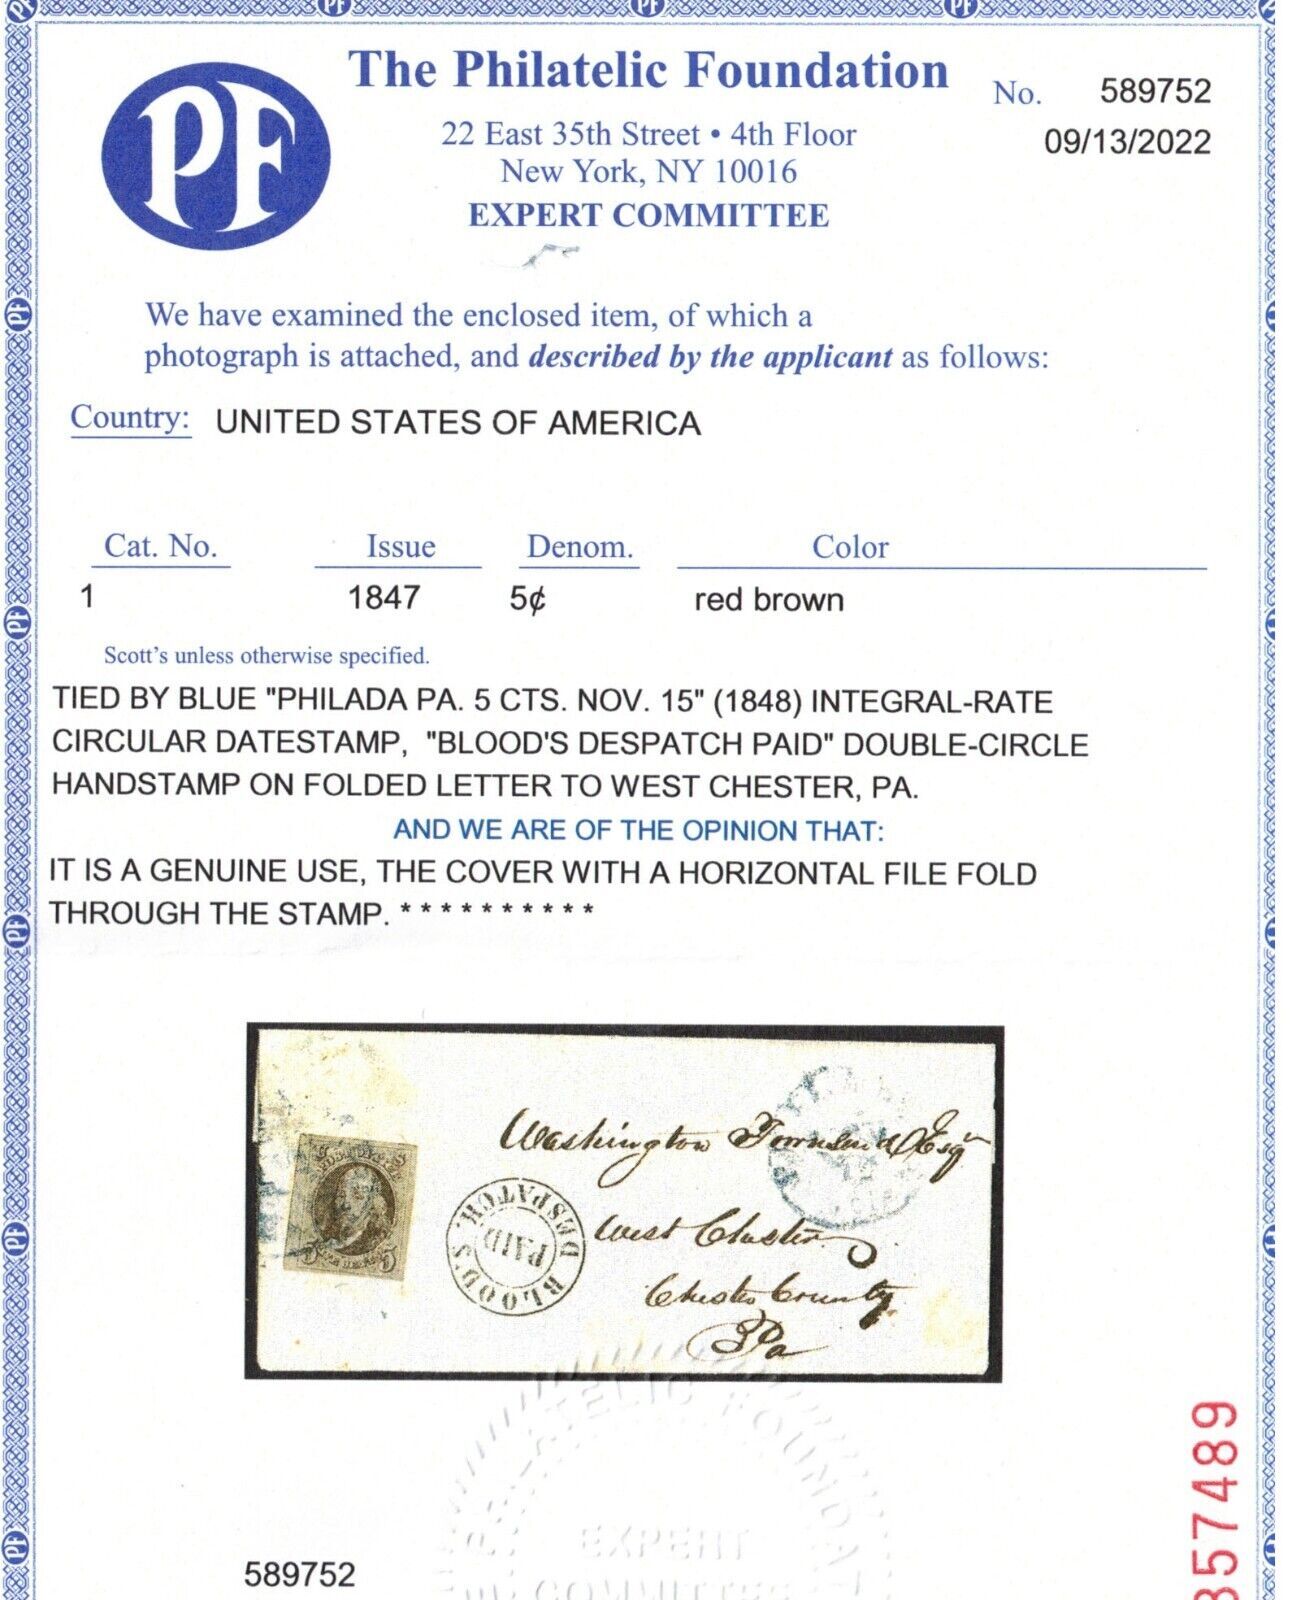 PF
The Philatelic Foundation
No. 589752
22 East 35th Street • 4th Floor
09/13/2022
New York, NY 10016
EXPERT COMMITTEE
We have examined the enclosed item, of which a
photograph is attached, and described by the applicant as follows:
Country: UNITED STATES OF AMERICA
Cat. No. Issue Denom. Color
1 1847 5¢ red brown
Scott's unless otherwise specified.
TIED BY BLUE "PHILADA PA. 5 CTS. NOV. 15" (1848) INTEGRAL-RATE
CIRCULAR DATESTAMP, "BLOOD'S DESPATCH PAID" DOUBLE-CIRCLE
HANDSTAMP ON FOLDED LETTER TO WEST CHESTER, PA.
AND WE ARE OF THE OPINION THAT:
IT IS A GENUINE USE, THE COVER WITH A HORIZONTAL FILE FOLD
THROUGH THE STAMP. * * * * * * * * * *
Washington Townsend Esqr
BLOOD'S DESPATCH.
PAID
West Chester
Chester County
Pa
EXPERT
COMMITTEE
589752
357489